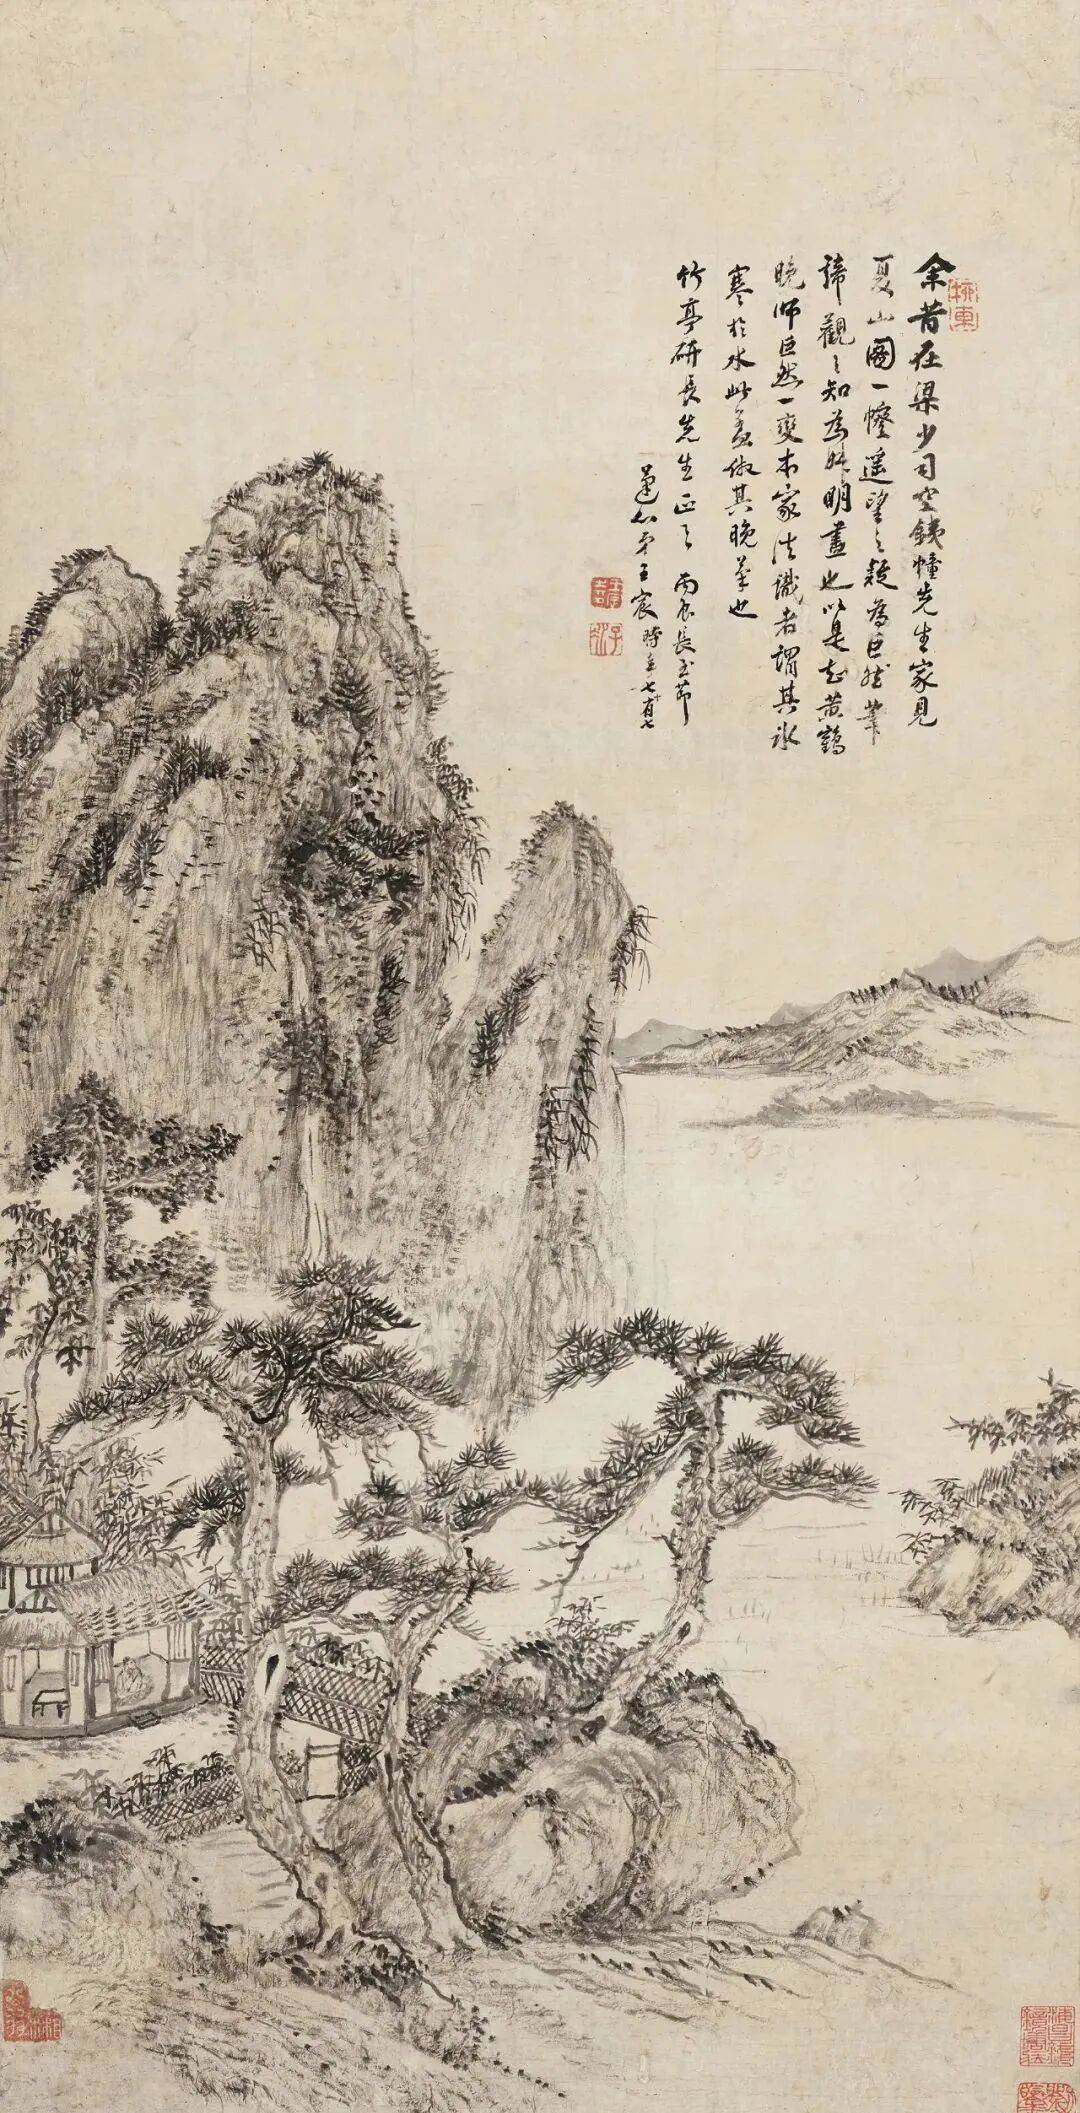 柳東
余昔在梁少司空錢幢先生家見
夏山圖一幢遥望之疑為巨然筆
諦觀之知為叔明畫也以是知黄鶴
晚師巨然一變本家法識者謂其冰
寒於水此蓋倣其晚筆也
竹亭研長先生正之 丙辰長至節
蓬心弟王宸時年七十有七